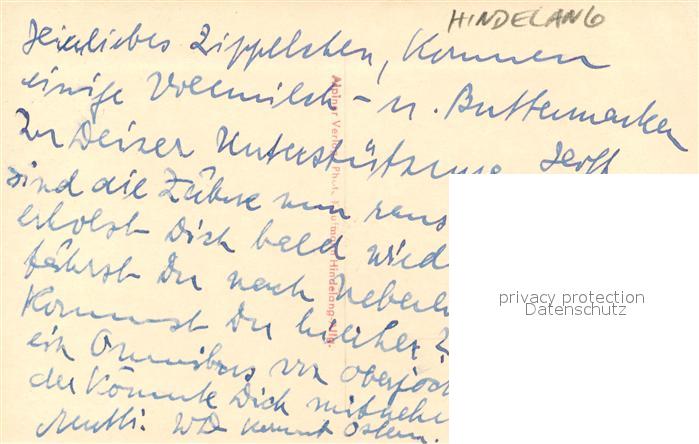 HINDELANG
Herzliebes Zippelchen, Kommen
einige Vollmilch- u. Buttermarken
Zu Deiner Unterstützung. Hoff
sind die Zähne nun raus
erholst Dich bald wied
fährst Du nach
Kommst Du hierher?
ein Omnibus von Oberjoch
der könnte Dich mitnehm
Mutti. WD kommt Ostern.
Alpiner Verlag Phot. Hindelang Allg.
privacy protection
Datenschutz